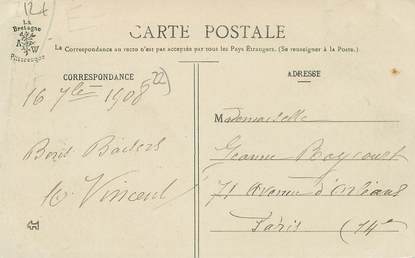 12+
La
Bretagne
A W
Pittoresque
CARTE POSTALE
La Correspondance au recto n'est pas acceptée par tous les Pays Étrangers. (Se renseigner à la Poste.)
CORRESPONDANCE
16 7bre 1908
Bons Baisers
Vincent
ADRESSE
Mademoiselle
Jeanne
71 avenue d'Orléans
Paris (14e